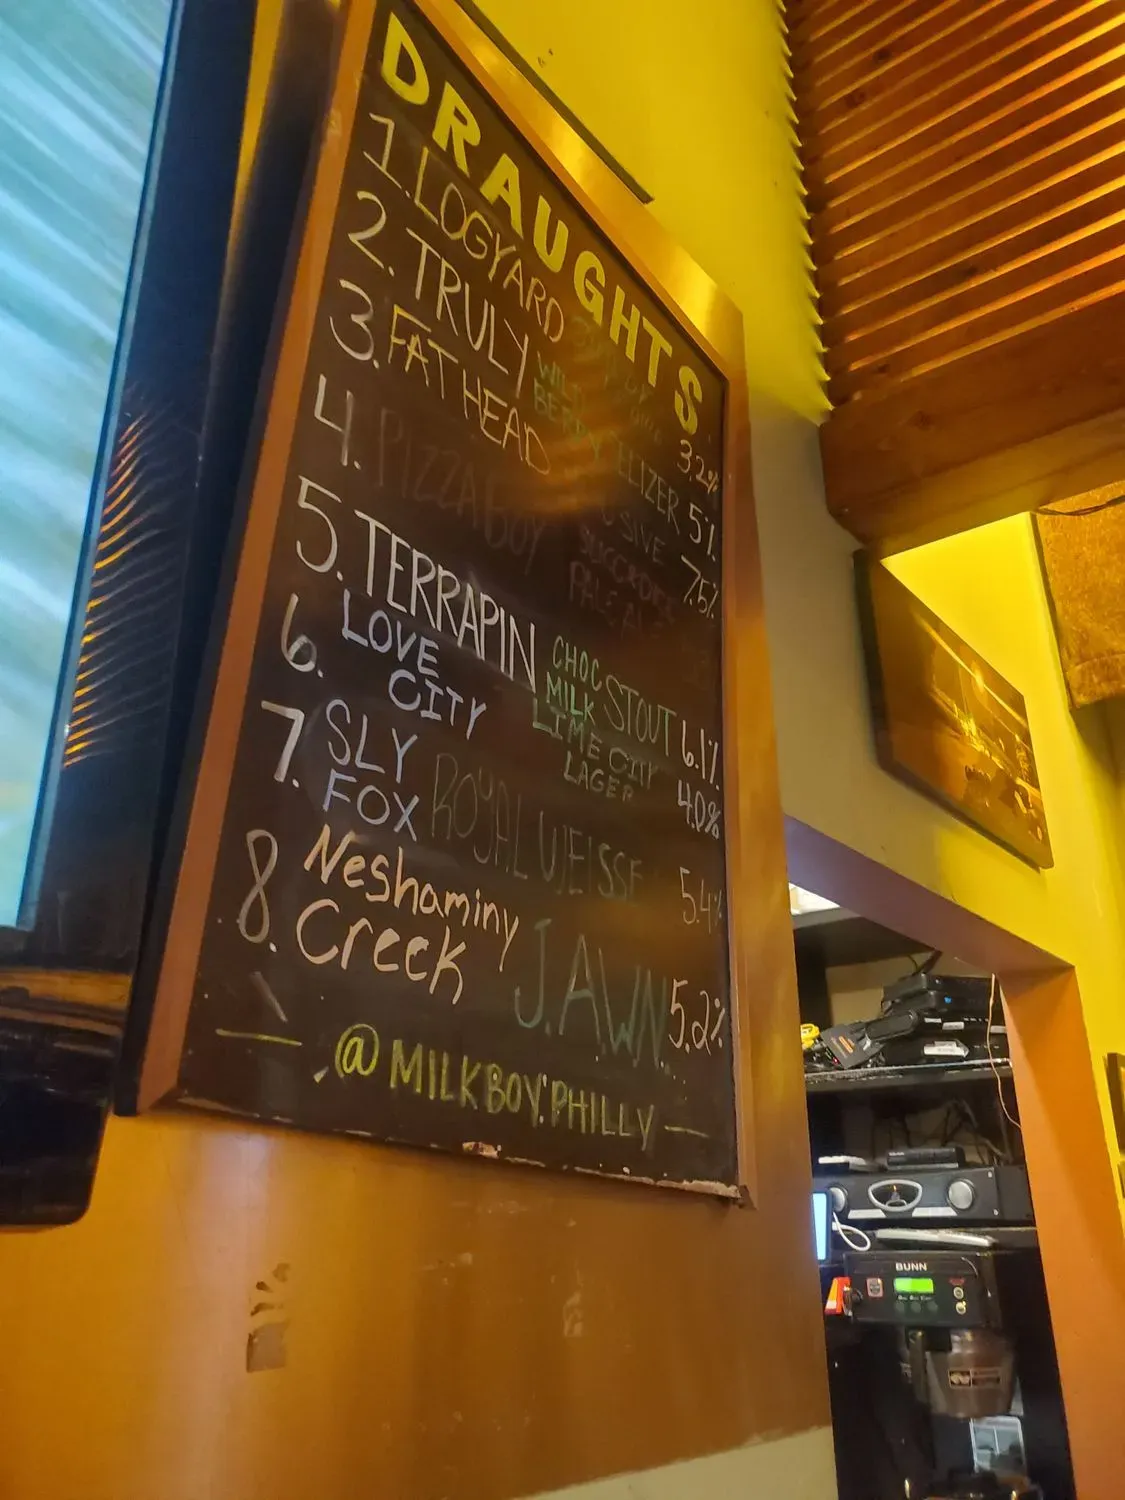 DRAUGHTS
1. LOGYARD 3.2%
2. TRULY WILD BERRY SELTZER 5%
3. FAT HEAD 7.5%
4. PIZZA BOY SUCCRDICE PALE ALE
5. TERRAPIN CHOC MILK STOUT 6.1%
6. LOVE CITY LIME CITY LAGER 4.0%
7. SLY FOX ROYAL WEISSE 5.4%
8. Neshaminy Creek J.A.W.N. 5.2%
@MILKBOY.PHILLY
BUNN